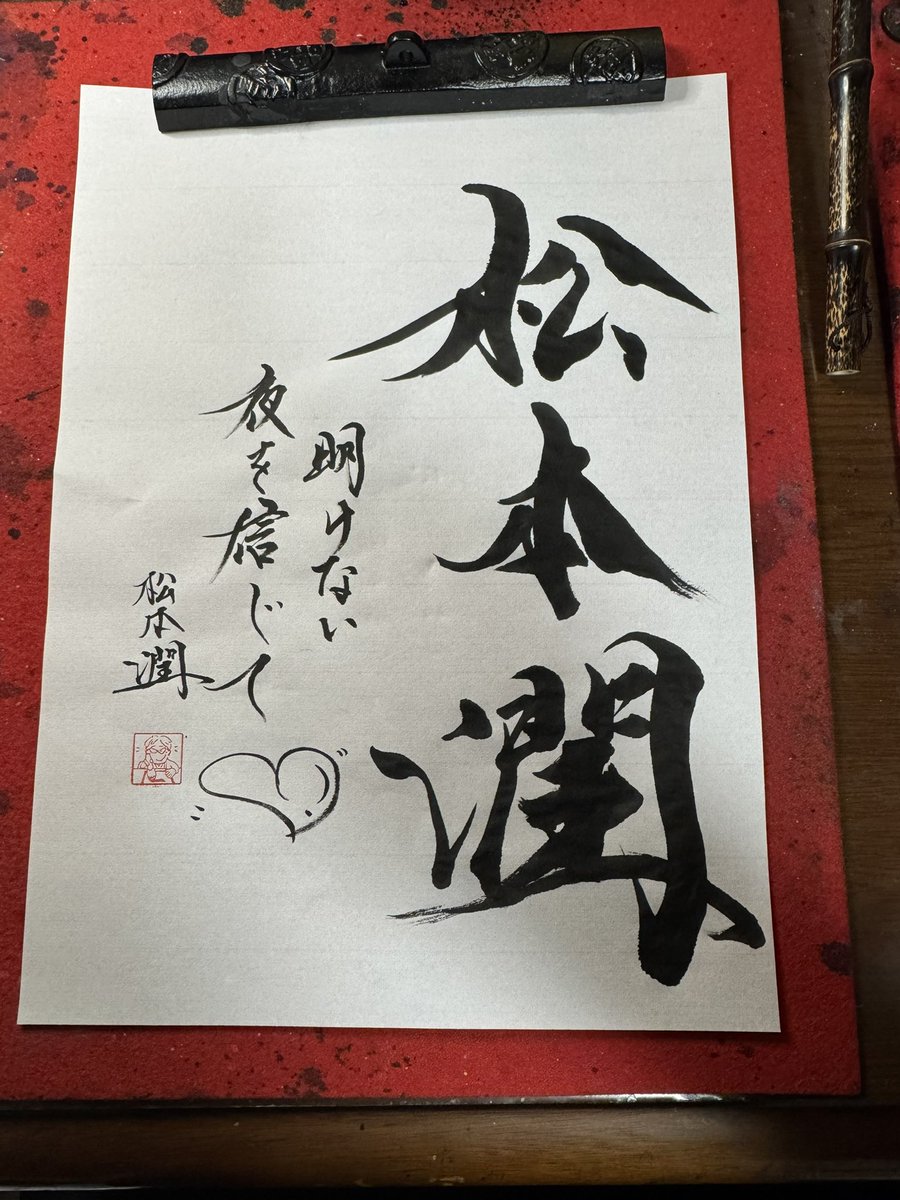 松本潤
明けない
夜を信じて
松本潤